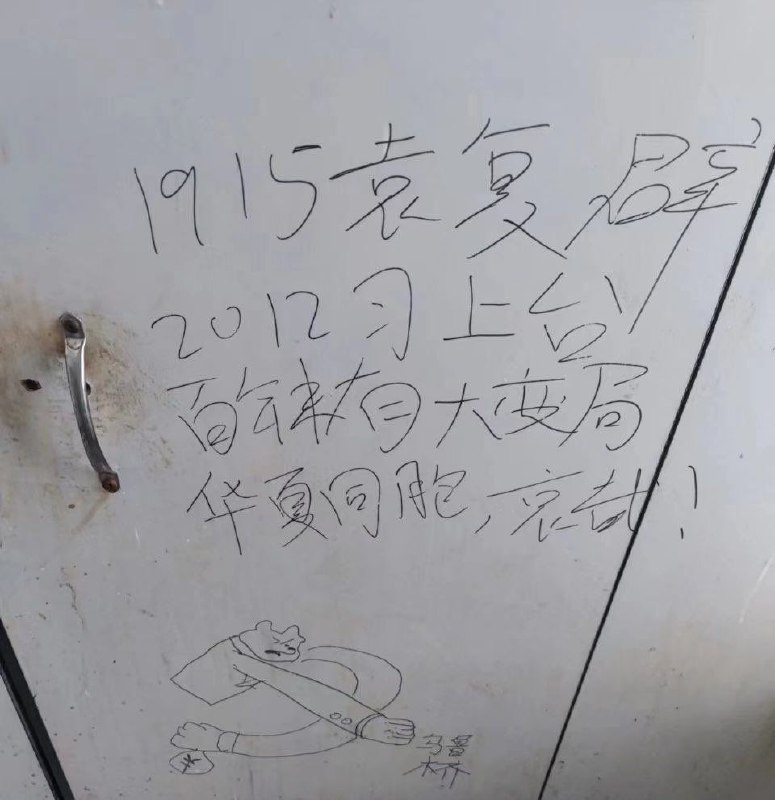 1915袁复辟
2012习上台
百年未有大变局
华夏同胞,哀哉!
乌鲁
木齐